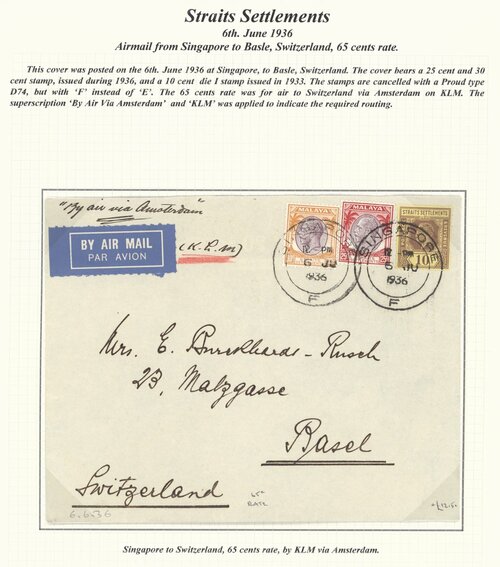 Straits Settlements
6th. June 1936
Airmail from Singapore to Basle, Switzerland, 65 cents rate.
This cover was posted on the 6th. June 1936 at Singapore, to Basle, Switzerland. The cover bears a 25 cent and 30
cent stamp, issued during 1936, and a 10 cent die I stamp issued in 1933. The stamps are cancelled with a Proud type
D74, but with ‘F’ instead of ‘E’. The 65 cents rate was for air to Switzerland via Amsterdam on KLM. The
superscription ‘By Air Via Amsterdam’ and ‘KLM’ was applied to indicate the required routing.
"By air via Amsterdam"
BY AIR MAIL
PAR AVION
(K.L.M)
MALAYA
MALAYA
STRAITS SETTLEMENTS
10c
SINGAPORE
PM
6 JU
1936
F
SINGAPORE
PM
6 JU
1936
F
Mrs. E. Burckhardt-Rusch
23, Malzgasse
Basel
Switzerland
6.6.36
65c
RATE
Singapore to Switzerland, 65 cents rate, by KLM via Amsterdam.